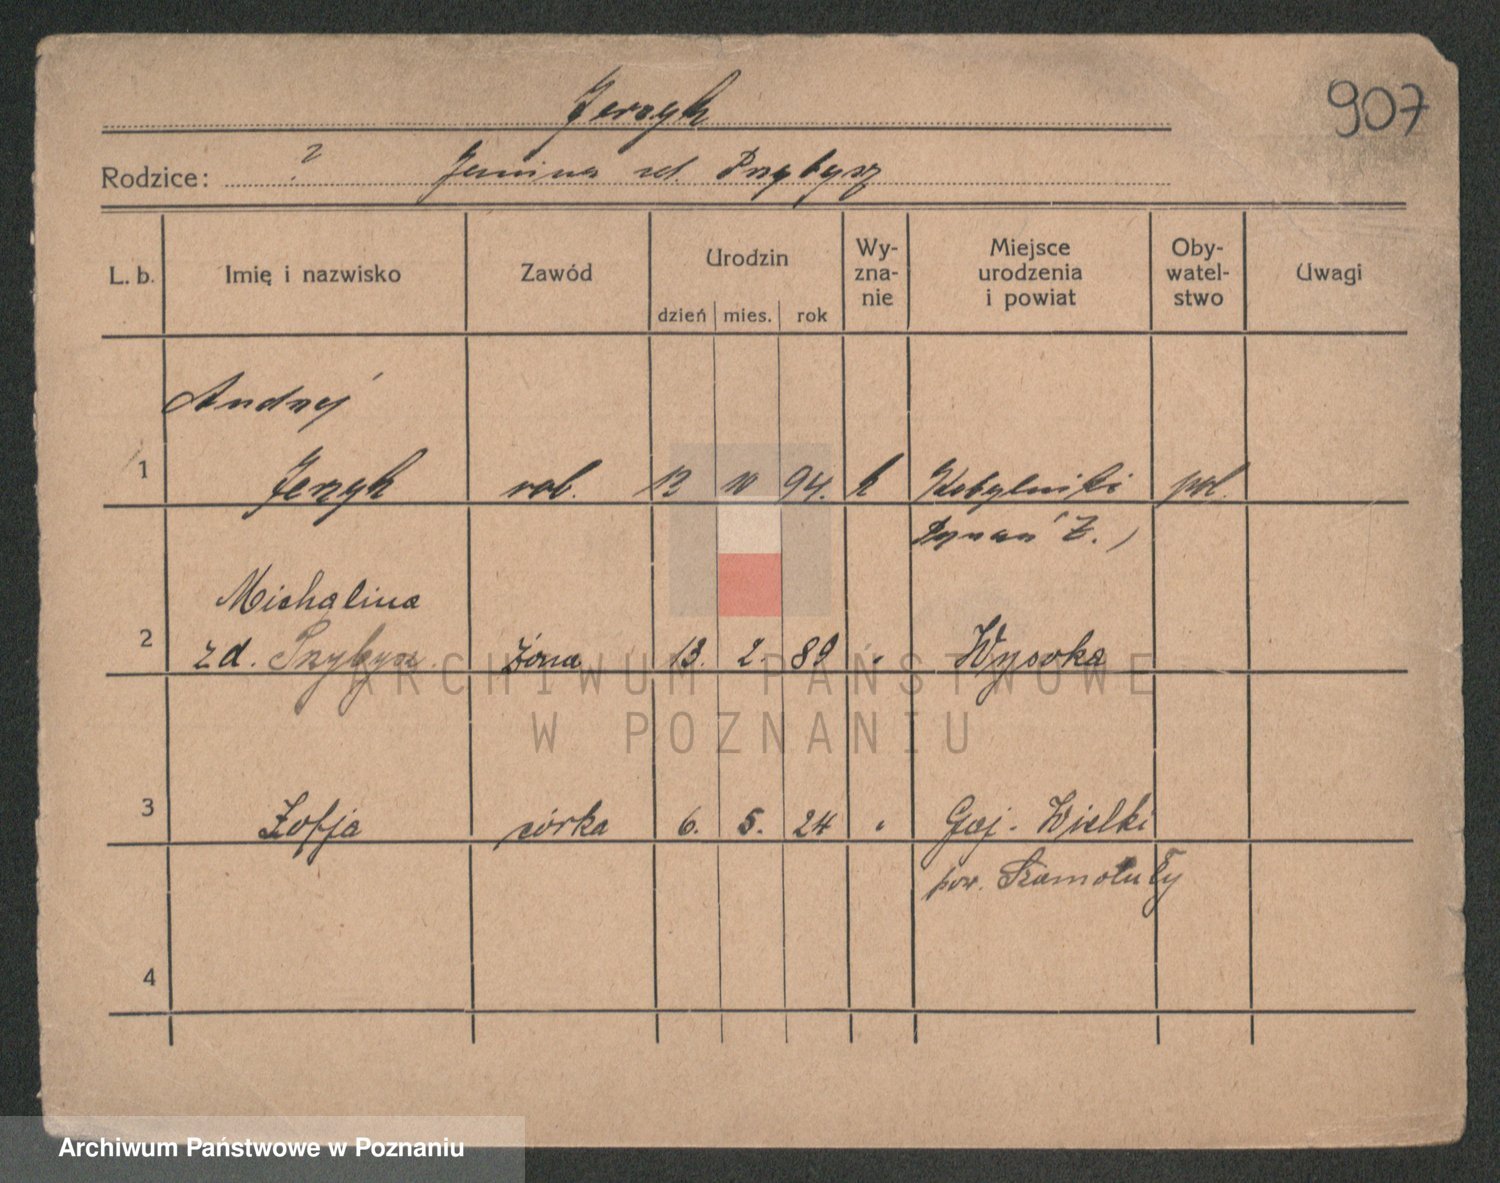 Jerzyk
907
Rodzice: ? Janina zd. Przybysz
L. b. Imię i nazwisko Zawód Urodzin dzień mies. rok Wy-zna-nie Miejsce urodzenia i powiat Oby-watel-stwo Uwagi
Andrzej
1 Jerzyk rob. 10 94. k Kobylniki pol.
Z.
Michalina
2 zd. Przybysz. żona 13. 2. 89 Wysoka
3 Zofja córka 6. 5. 24 Gaj-Wielki
pow. Szamotuły
4
ARCHIWUM PAŃSTWOWE
W POZNANIU
Archiwum Państwowe w Poznaniu